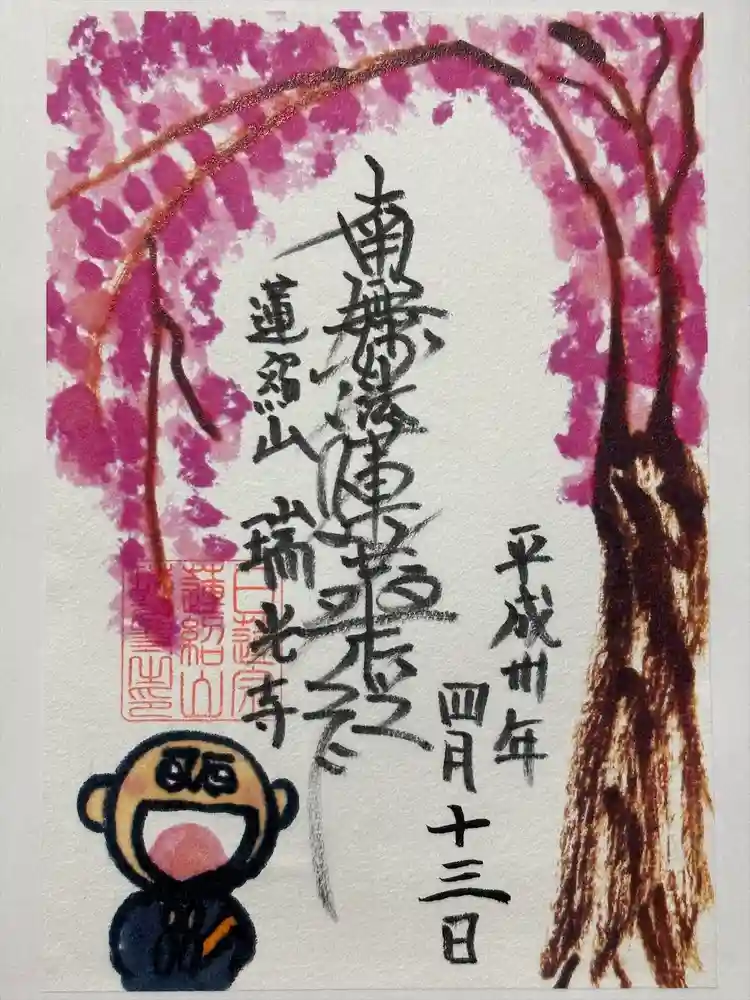 平成卅年
四月十三日
南無妙法蓮華経
蓮紹山
瑞光寺
日蓮宗
蓮紹山